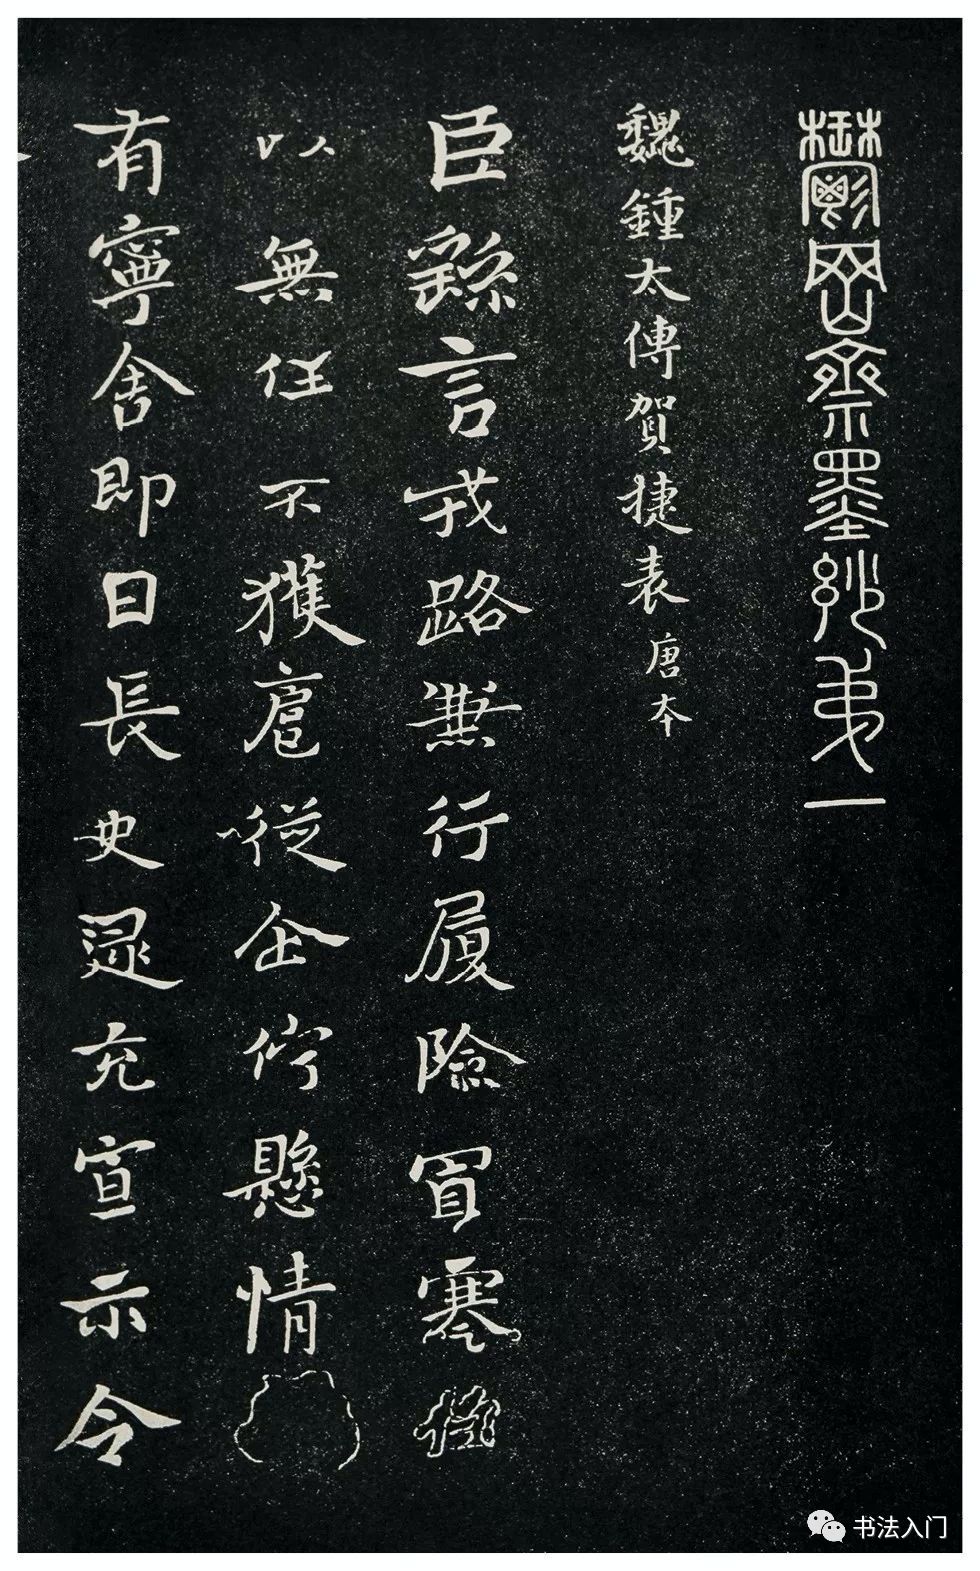 鬱岡齋墨妙第一
魏鍾太傅賀捷表 唐本
臣繇言戎路兼行履險冒寒
以無任不獲扈從企佇懸情
有寧舍即日長史逯充宣示令
书法入门